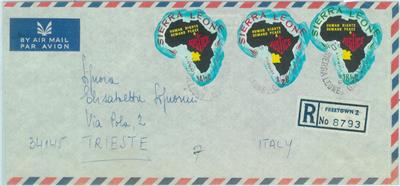 BY AIR MAIL
PAR AVION
SIERRA LEONE
HUMAN RIGHTS
DEMAND PEACE
JUSTICE
SIERRA LEONE
HUMAN RIGHTS
DEMAND PEACE
JUSTICE
SIERRA LEONE
HUMAN RIGHTS
DEMAND PEACE
JUSTICE
Elisabetta
Via Pola, 2
34145 TRIESTE
ITALY
R
FREETOWN 2
No 8793